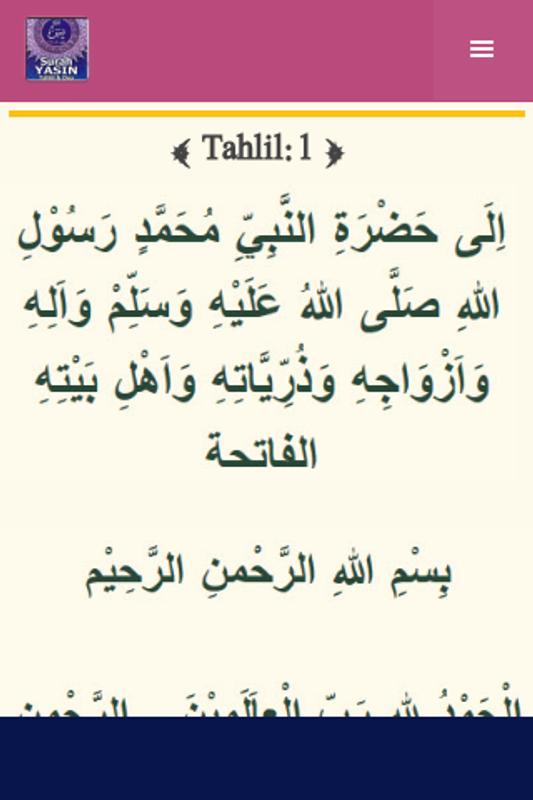 Surah
YASIN
Tahlil & Doa
Tahlil: 1
اِلَى حَضْرَةِ النَّبِيِّ مُحَمَّدٍ رَسُوْلِ
اللهِ صَلَّى اللهُ عَلَيْهِ وَسَلِّمْ وَآلِهِ
وَاَزْوَاجِهِ وَذُرِّيَّاتِهِ وَاَهْلِ بَيْتِهِ
الفاتحة
بِسْمِ اللهِ الرَّحْمنِ الرَّحِيْم
الْحَمْدُ للهِ رَبِّ الْعالَمِيْنَ الرَّحْمنِ